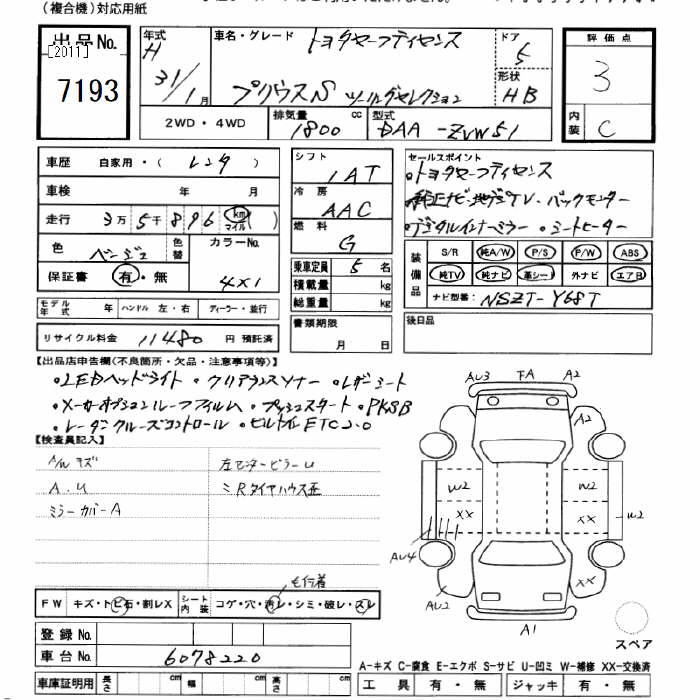 (複合機)対応用紙
出品No. [2011] 7193
年式 H 31/1月
車名・グレード トヨタセーフティセンス
プリウスS ツーリングセレクション
ドア 5
形状 HB
評価点 3
内装 C
2WD・4WD 排気量 1800 cc 型式 DAA-ZVW51
車歴 自家用・(レンタ)
車検 年 月
走行 3万5千896 km マイル ( )
色 ベージュ 色替 カラーNo. 4X1
保証書 有・無
モデル年式 年 ハンドル 左・右 ディーラー・並行
リサイクル料金 11480 円 預託済
シフト IAT
冷房 AAC
燃料 G
乗車定員 5 名
積載量 kg
総重量 kg
書類期限 月 日
セールスポイント
・トヨタセーフティセンス
・純正ナビ・地デジTV・バックモニター
・デジタルインナーミラー・シートヒーター
装備品 S/R 純A/W P/S P/W ABS
純TV 純ナビ 革シート 外ナビ エアB
ナビ型番: NSZT-Y68T
後日品
【出品店申告欄(不良箇所・欠品・注意事項等)】
・LEDヘッドライト・クリアランスソナー・レザーシート
・メーカーオプションルーフフィルム・プッシュスタート・PKSB
・レーダークルーズコントロール・ビルトインETC2.0
【検査員記入】
A/W キズ
A.U
ミラーカバーA
左センターピラーU
ミRタイヤハウス歪
モケ者
FW キズ・トビ石・割レX シート内装 コゲ・穴・汚レ・シミ・破レ・スレ
登録No.
車台No. 6078220
車庫証明用 長さ cm 幅 cm 高さ cm
AU3 FA A2
A2
W2 W2
XX XX
W2
AU4
AU2
XX
A1
スペア
A-キズ C-腐食 E-エクボ S-サビ U-凹ミ W-補修 XX-交換済
工具 有・無 ジャッキ 有・無